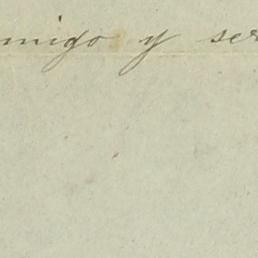 amigo y ser